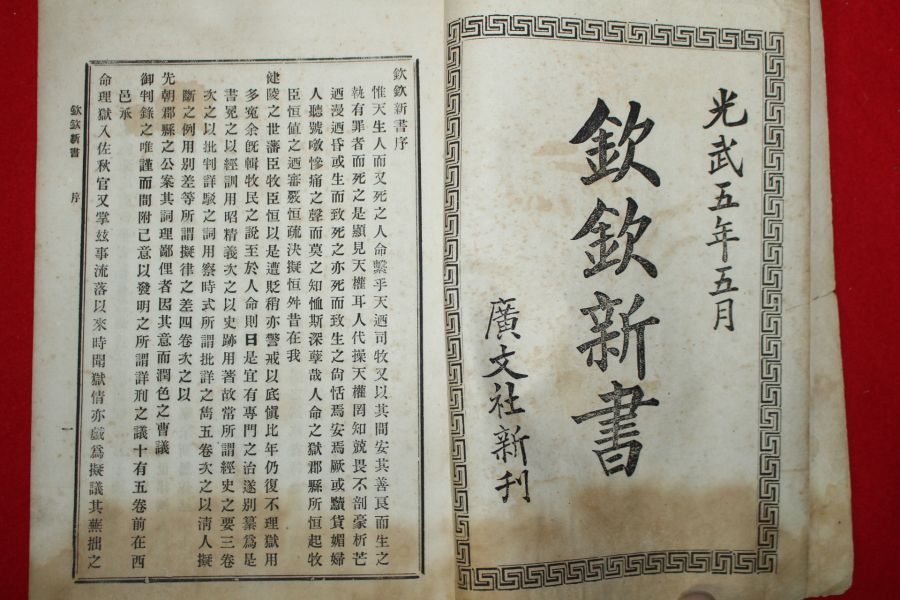 光武五年五月
欽欽新書
廣文社新刊
欽欽新書序
惟天生人而又死之人命繫乎天迺司牧又以其間安其善良而生之
執有罪者而死之是顯見天權耳人代操天權罔知兢畏不剖豪析芒
迺漫迺昏或生而致死之亦死而致生之尙恬焉安焉厥或黷貨媚婦
人聽號噭慘痛之聲而莫之知恤斯深孽哉人命之獄郡縣所恒起牧
臣恒値之迺審覈恒疏決擬恒舛昔在我
健陵之世藩臣牧臣恒以是遭貶稍亦警戒以底愼比年仍復不理獄用
多寃余旣輯牧民之說至於人命則曰是宜有專門之治遂別纂爲是
書冕之以經訓用昭精義次之以史跡用著故常所謂經史之要三卷
次之以批判詳駁之詞用察時式所謂批詳之雋五卷次之以淸人擬
斷之例用別差等所謂擬律之差四卷次之以
先朝郡縣之公案其詞理鄙俚者因其意而潤色之曹議
御判錄之唯謹而間附己意以發明之所謂詳刑之議十有五卷前在西
邑承
命理獄入佐秋官又掌玆事流落以來時聞獄情亦戲爲擬議其蕪拙之
欽欽新書 序 一